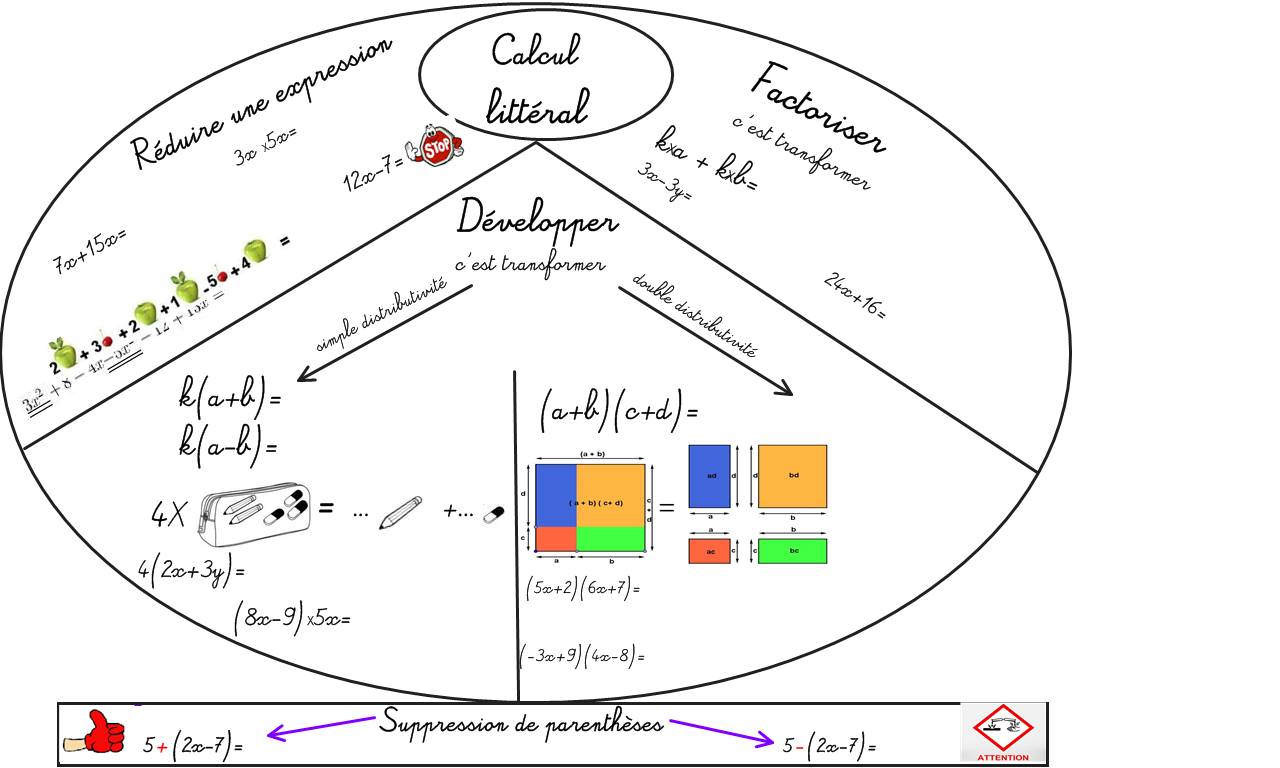 Calcul
littéral
Réduire une expression
3x x5x=
12x-7=
STOP
7x+15x=
2 +3 +2 +1 -5 +4 =
3x² + 8 - 4x - 5x² - 12 + 15x =
Factoriser
c'est transformer
kxa + kxb=
3x-3y=
24x+16=
Développer
c'est transformer
simple distributivité
double distributivité
k(a+b)=
k(a-b)=
4X = ... +...
4(2x+3y)=
(8x-9)x5x=
(a+b)(c+d)=
(a + b)
d
c
(a + b) (c+ d)
c + d
a
b
=
ad
d
a
d
bd
b
a
ac
c
b
c
bc
(5x+2)(6x+7)=
(-3x+9)(4x-8)=
Suppression de parenthèses
5+(2x-7)=
5-(2x-7)=
ATTENTION